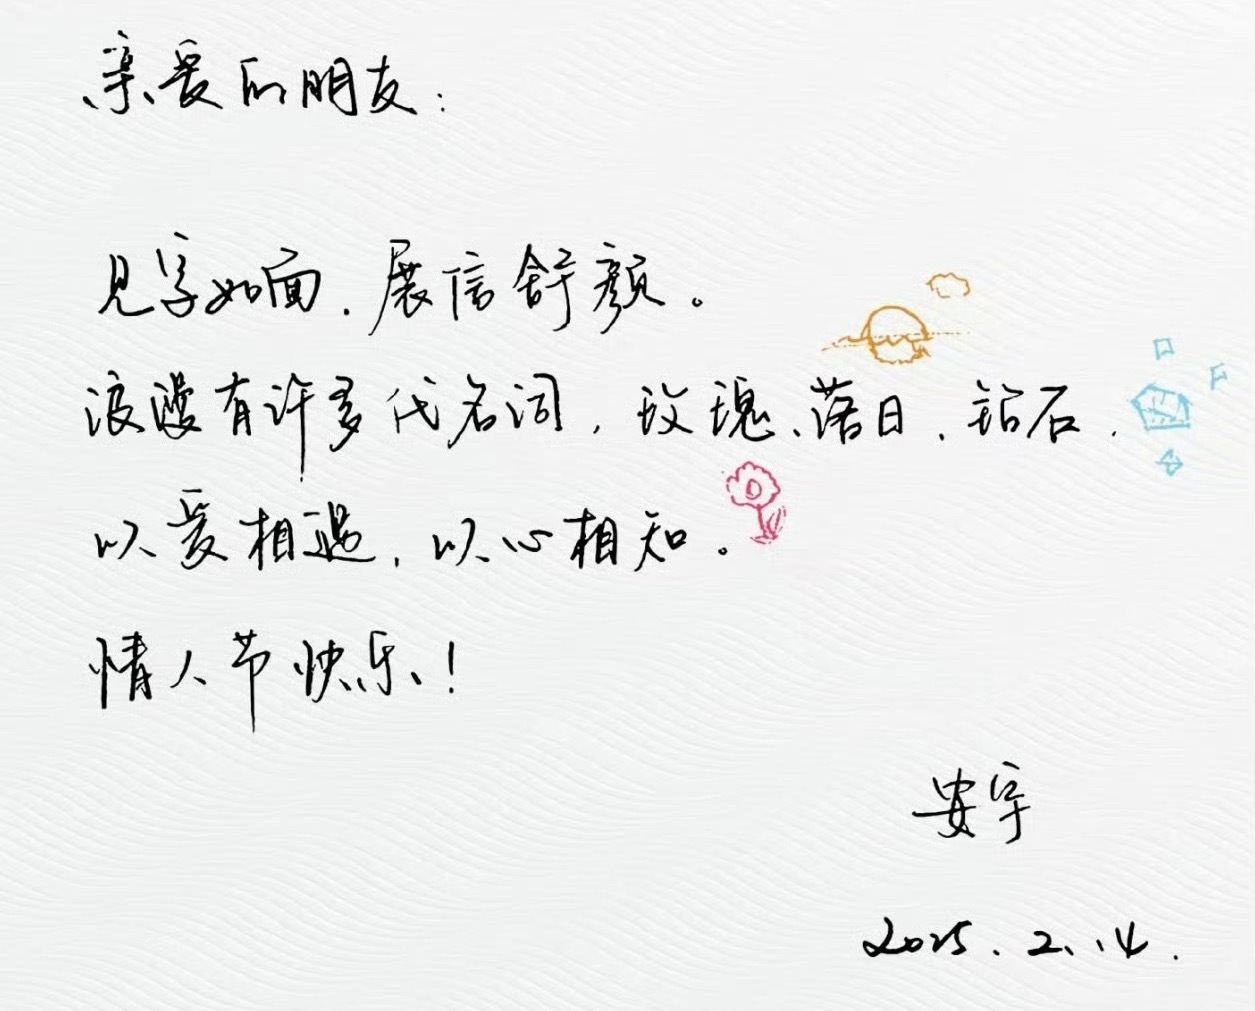 亲爱的朋友：
见字如面，展信舒颜。
浪漫有许多代名词，玫瑰、落日、钻石，
以爱相遇，以心相知。
情人节快乐！
安宇
2025.2.14.